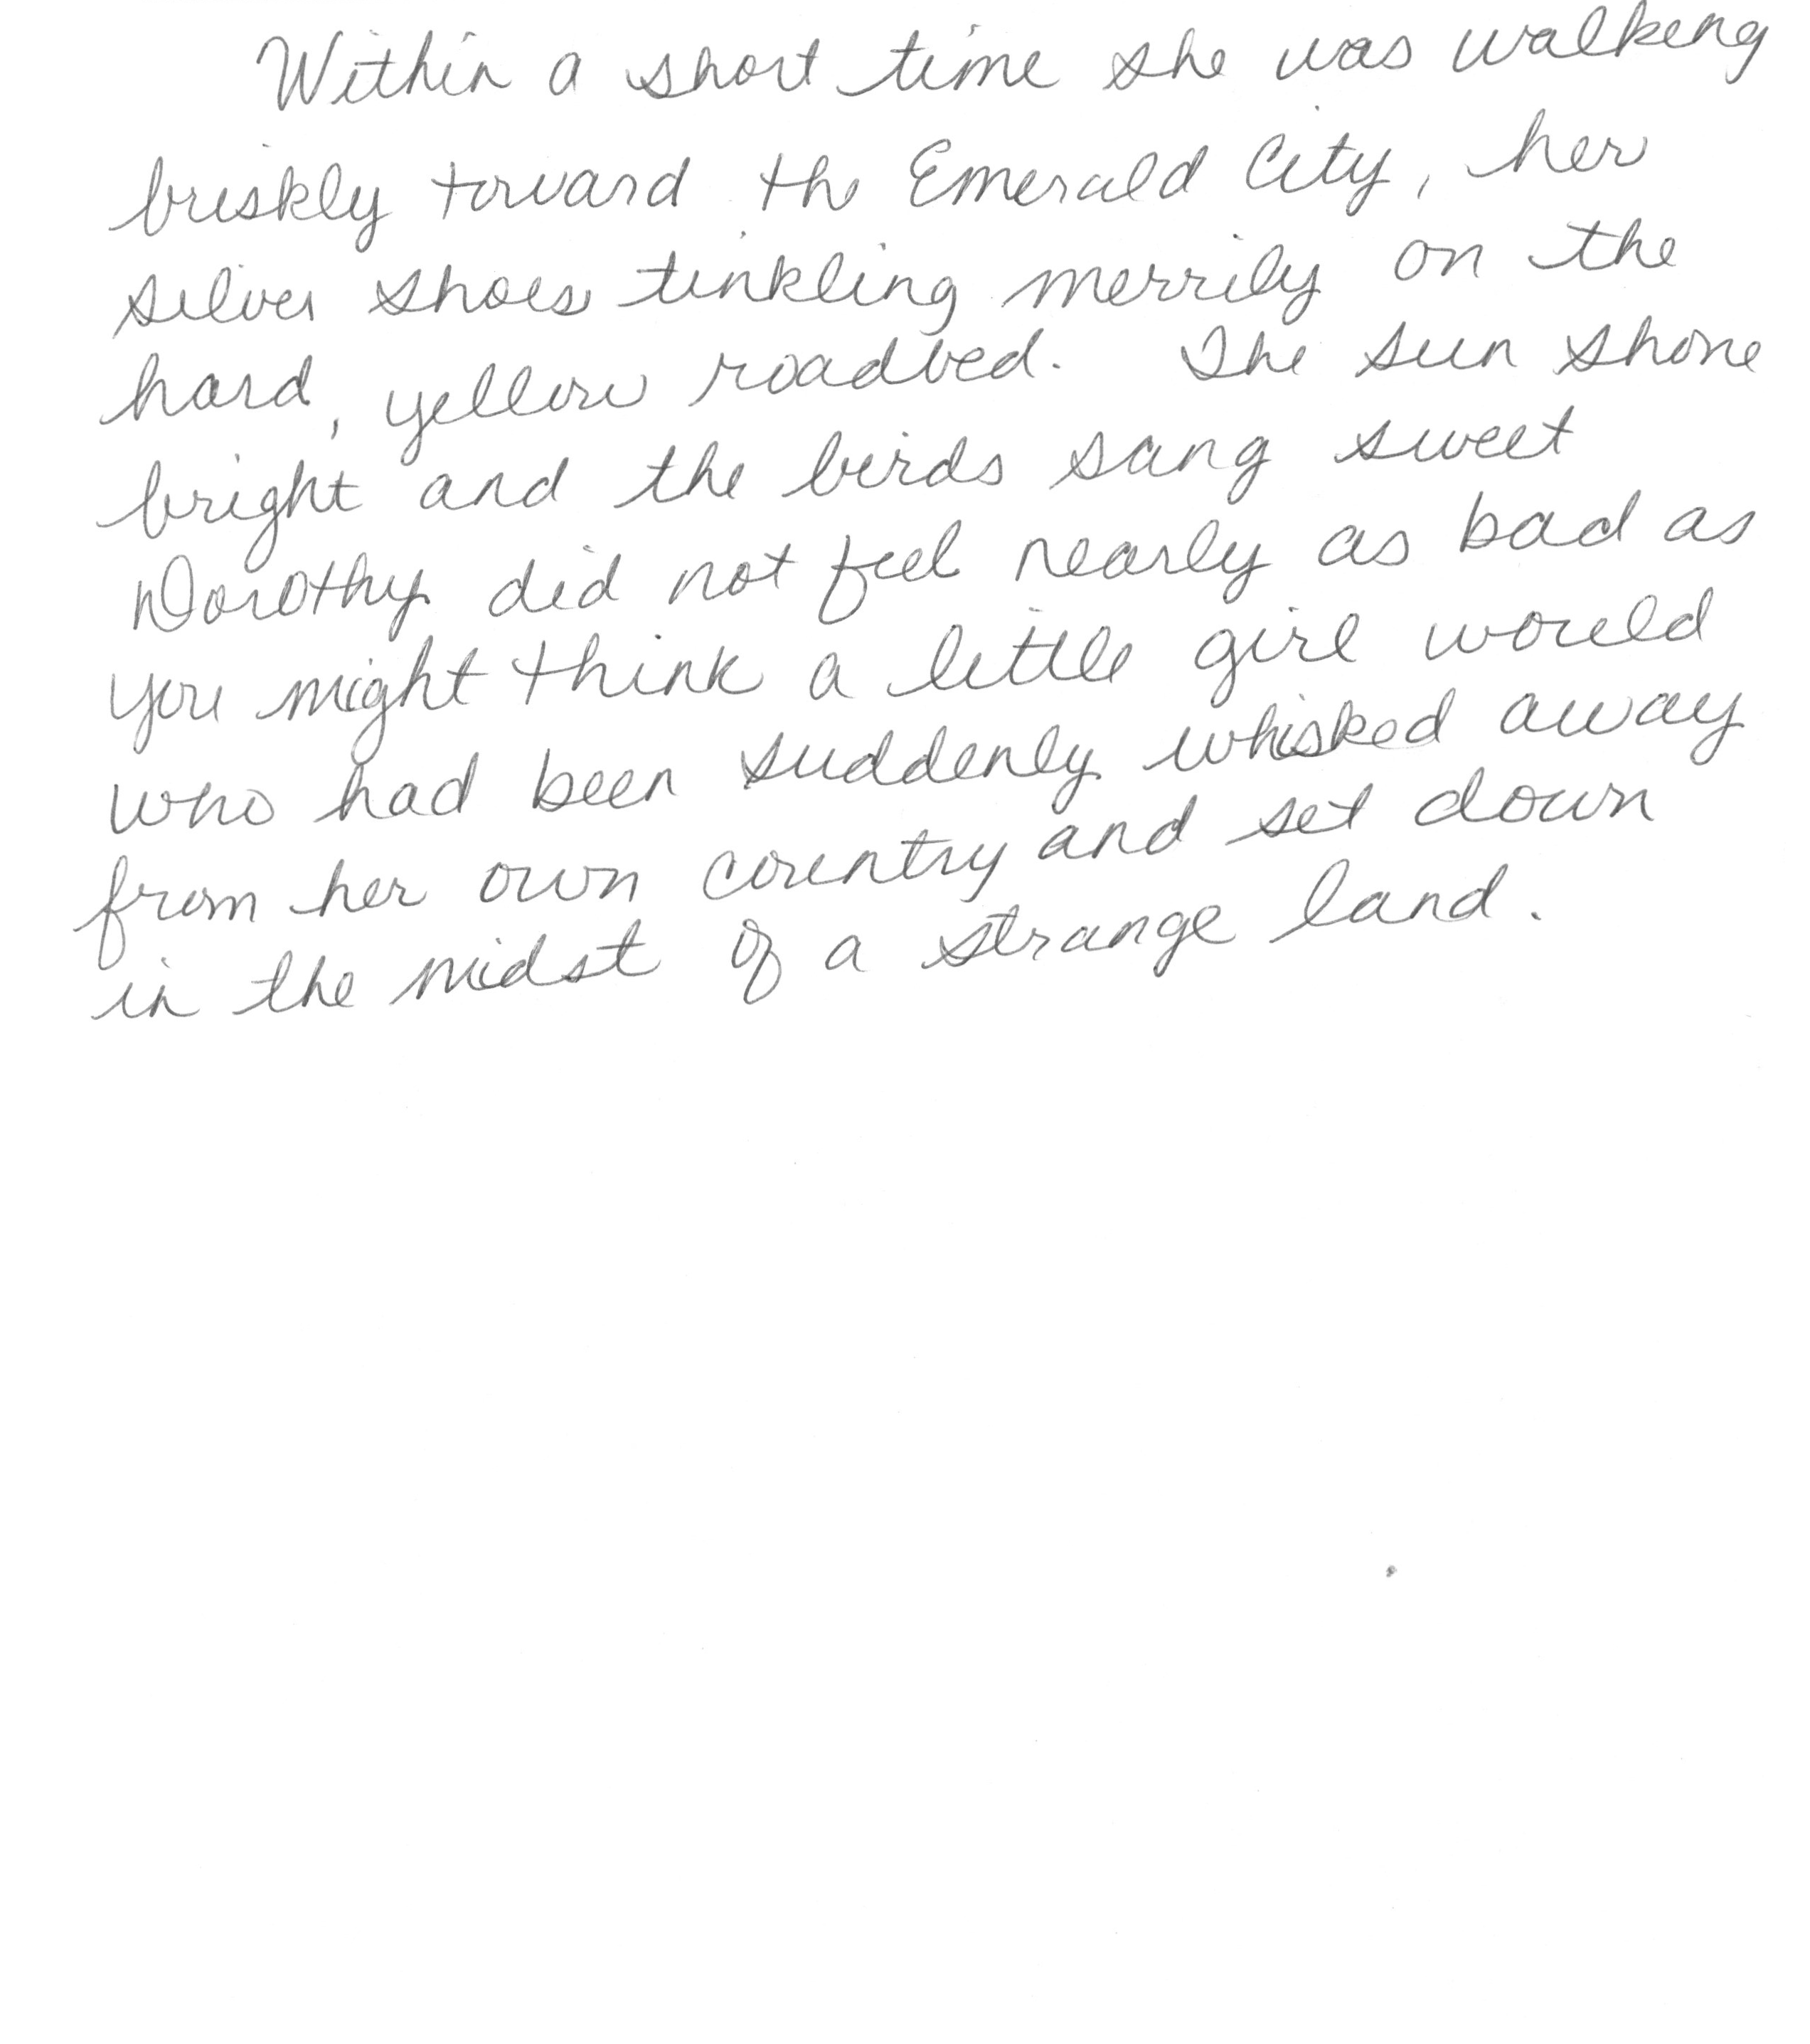 Within a short time she was walking
briskly toward the Emerald City, her
silver shoes tinkling merrily on the
hard, yellow roadbed. The sun shone
bright and the birds sang sweet
Dorothy did not feel nearly as bad as
you might think a little girl would
who had been suddenly whisked away
from her own country and set down
in the midst of a strange land.